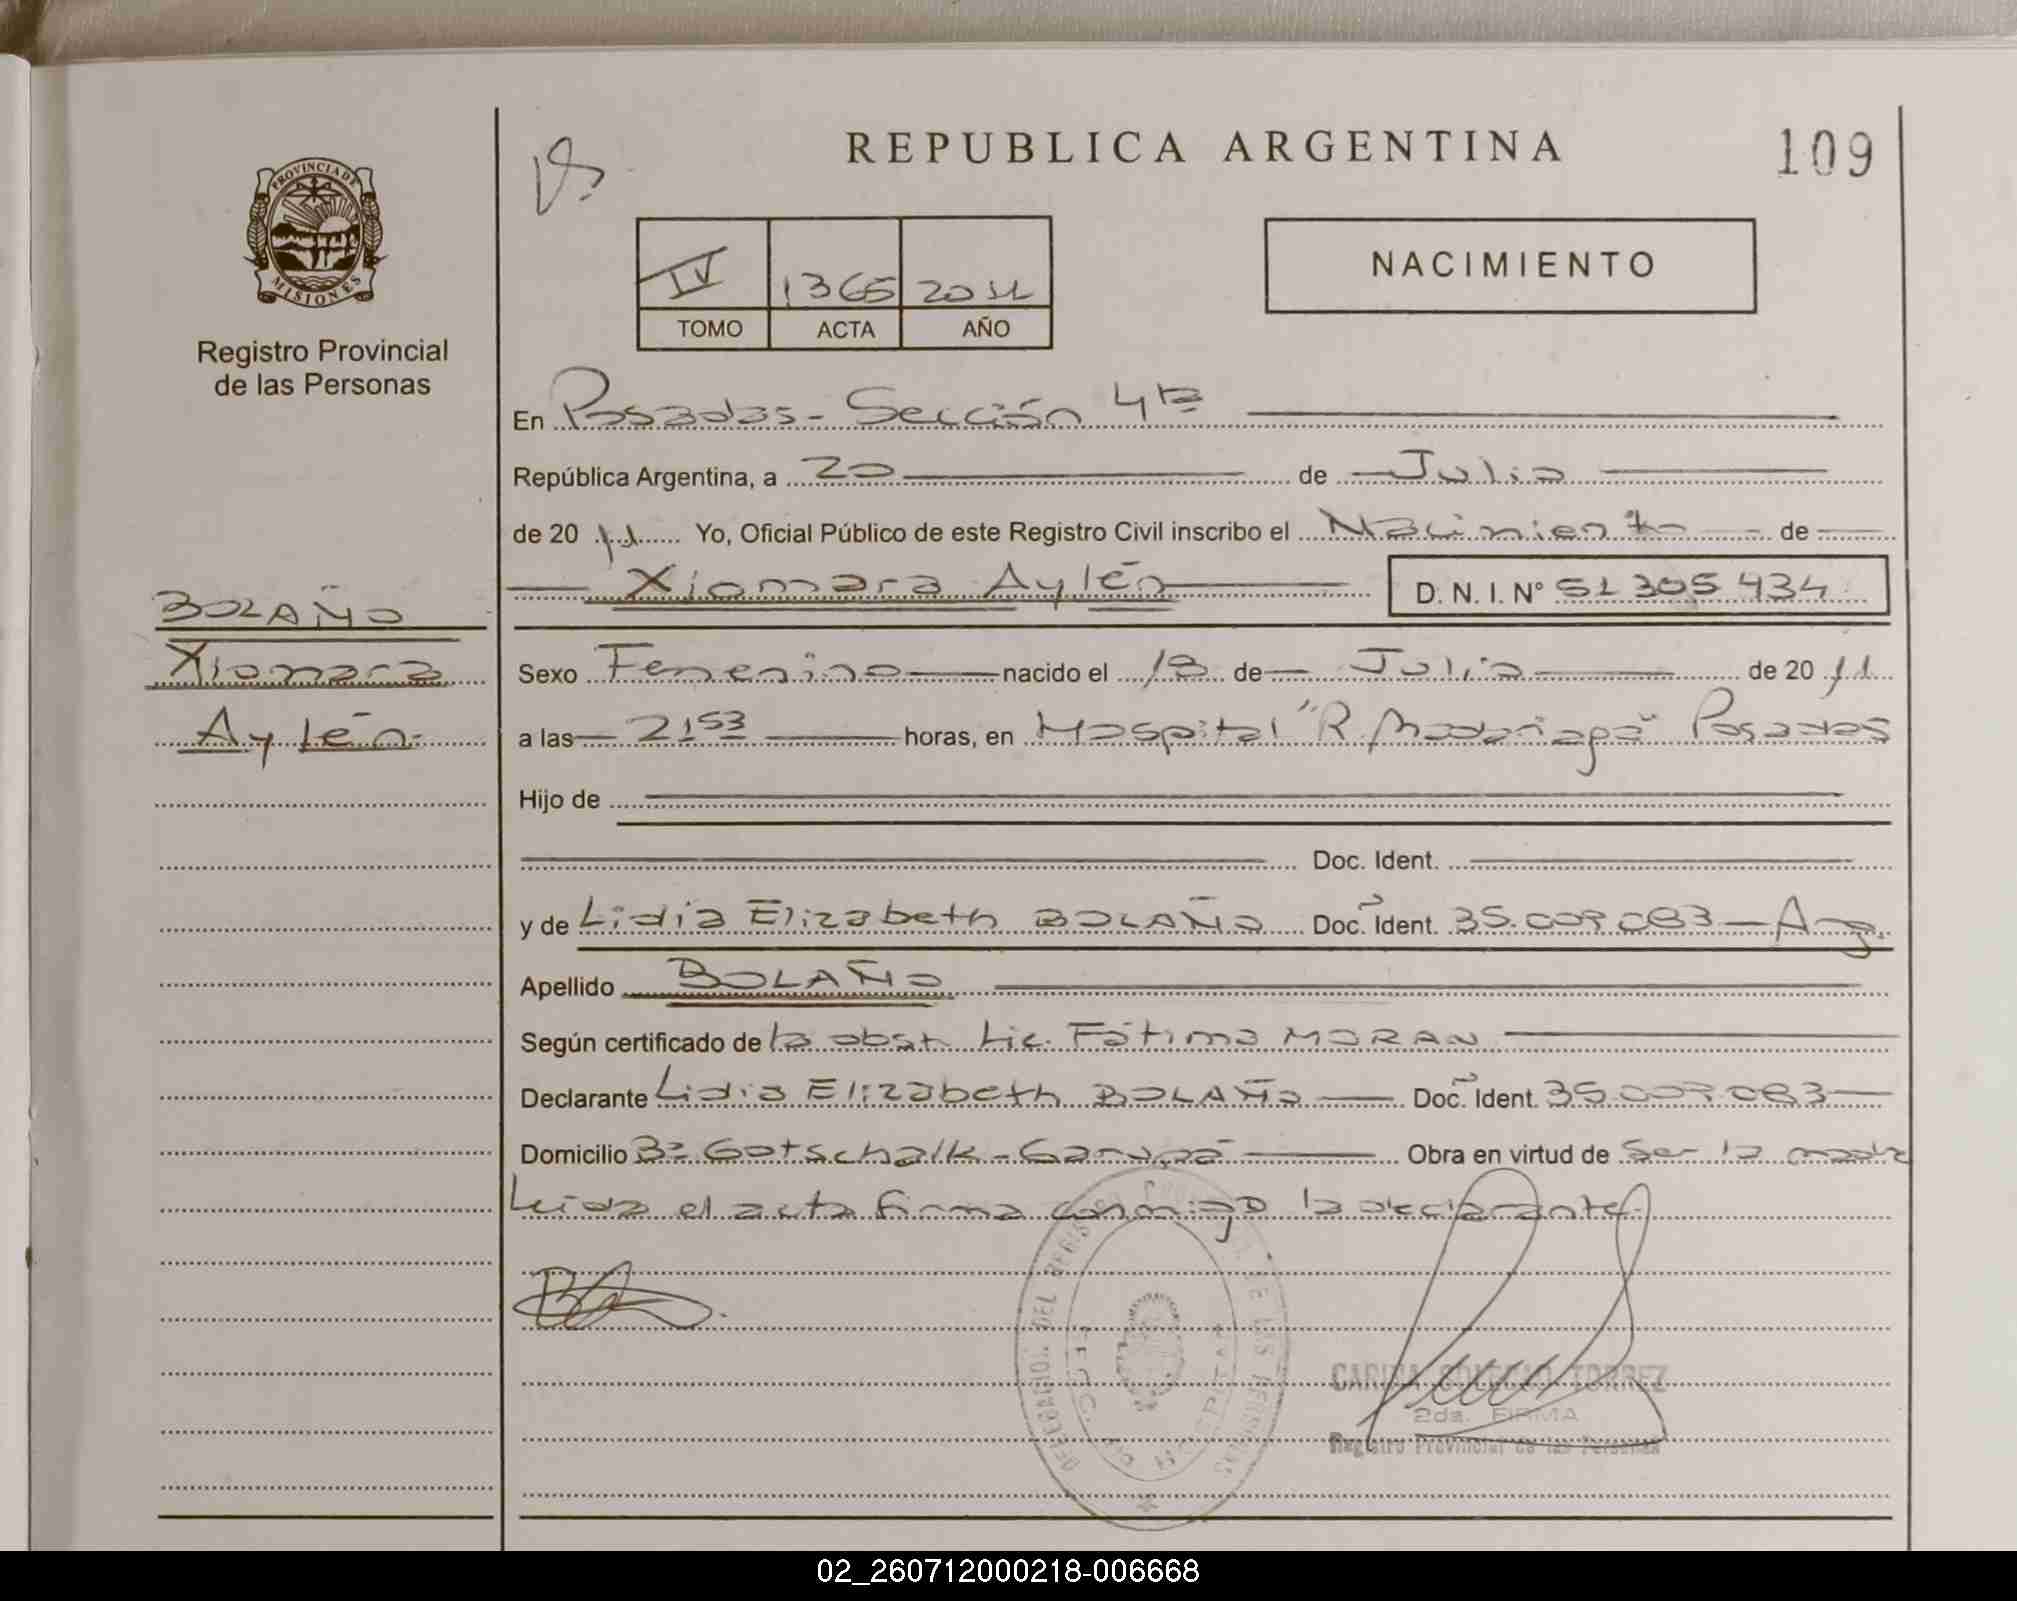 REPUBLICA ARGENTINA
109
PROVINCIA DE
MISIONES
Registro Provincial
de las Personas
NACIMIENTO
IV 1365 2011
TOMO ACTA AÑO
En Posadas - Sección 4ta
República Argentina, a 20 de Julio
de 20 11 Yo, Oficial Público de este Registro Civil inscribo el Nacimiento de
Xiomara Aylén D. N. I. N° 51 305 434
BOLAÑO
Xiomara
Aylén
Sexo Femenino nacido el 18 de Julio de 20 11
a las 21 53 horas, en Hospital "R. Madariaga" Posadas
Hijo de
Doc. Ident.
y de Lidia Elizabeth BOLAÑO Doc. Ident. 35.009.083 - Arg.
Apellido BOLAÑO
Según certificado de la obst. Lic. Fátima MORAN
Declarante Lidia Elizabeth BOLAÑO Doc. Ident. 35.009.083
Domicilio Bº Gotschalk - Garupá Obra en virtud de Ser la madre
Leida el acta firma conmigo la declarante
DELEGACION DEL REGISTRO PROVINCIAL DE LAS PERSONAS
HOSPITAL
TORREZ
2da. FIRMA
Registro Provincial de las Personas
02_260712000218-006668